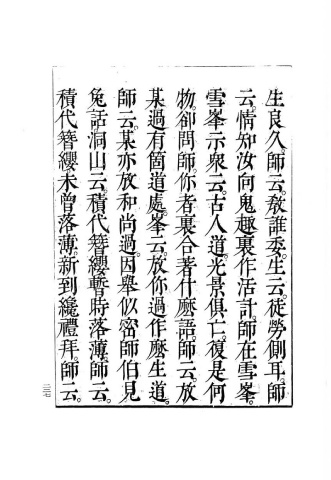 生良久師云教誰委生云徒勞側耳師
云情知汝向鬼趣裏作活計師在雪峯
雪峯示衆云古人道光景俱亡復是何
物卻問師你者裏合著什麼語師云放
某過有箇道處峯云放你過作麼生道
師云某亦放和尚過因舉似密師伯見
兔話洞山云積代簪纓暫時落薄師云
積代簪纓未曾落薄新到纔禮拜師云
二三七